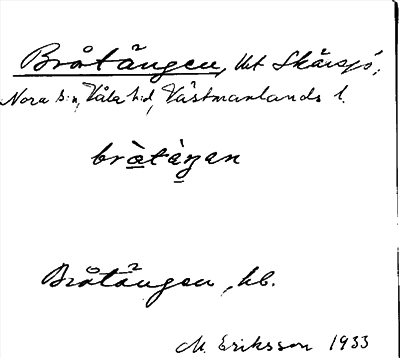 Bråtängen, tkt Skärsjö,
Nora s:n, Våla h:d, Västmanlands l.
bràtàŋan
Bråtängen, hb.
M. Eriksson 1933